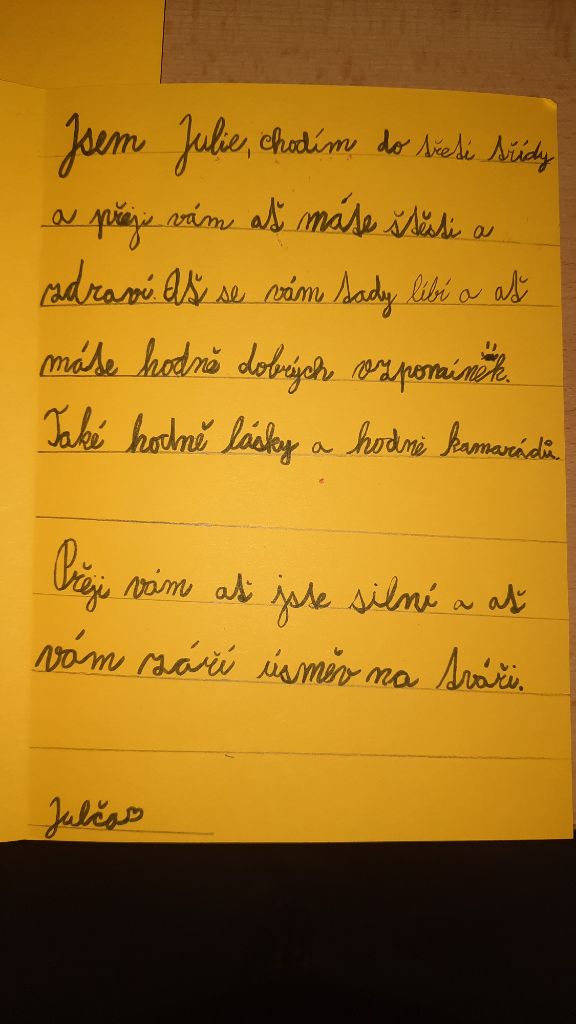 Jsem Julie, chodím do třetí třídy
a přeji vám ať máte štěstí a
zdraví. Ať se vám tady líbí a ať
máte hodně dobrých vzpomínek.
Také hodně lásky a hodně kamarádů.
Přeji vám ať jste silní a ať
vám září úsměv na tváři.
Julča♡